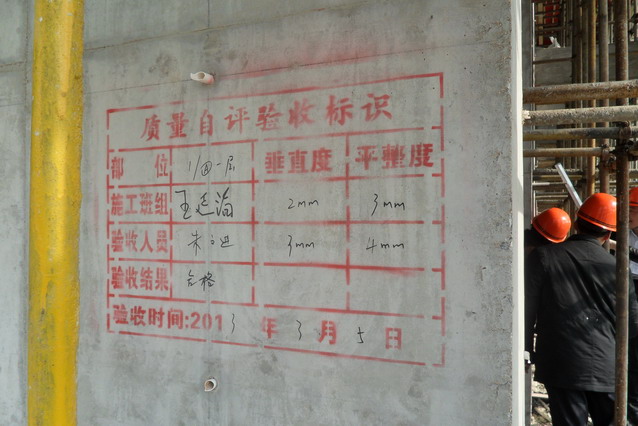 质量自评验收标识
部 位 1/四一层 垂直度 平整度
施工班组 王廷海 2mm 3mm
验收人员 朱 进 3mm 4mm
验收结果 合格
验收时间:2013 年 3 月 5 日